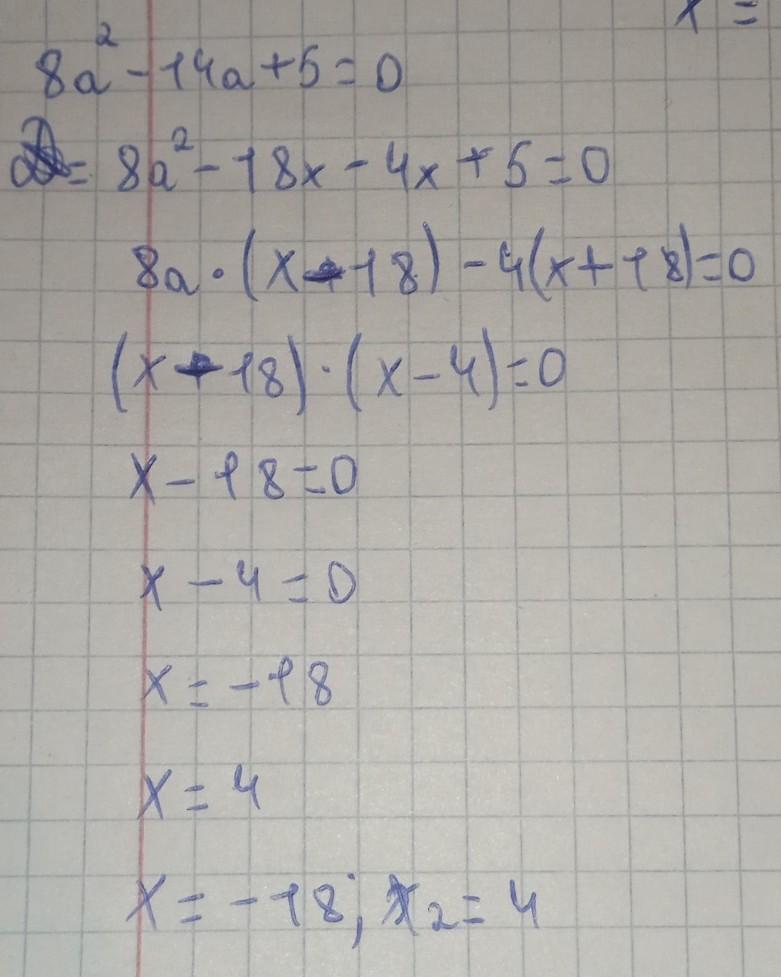 x =
8a² - 14a + 5 = 0
= 8a² - 18x - 4x + 5 = 0
8a · (x - 18) - 4(x + 18) = 0
(x - 18) · (x - 4) = 0
x - 18 = 0
x - 4 = 0
x = -18
x = 4
x = -18; x₂ = 4